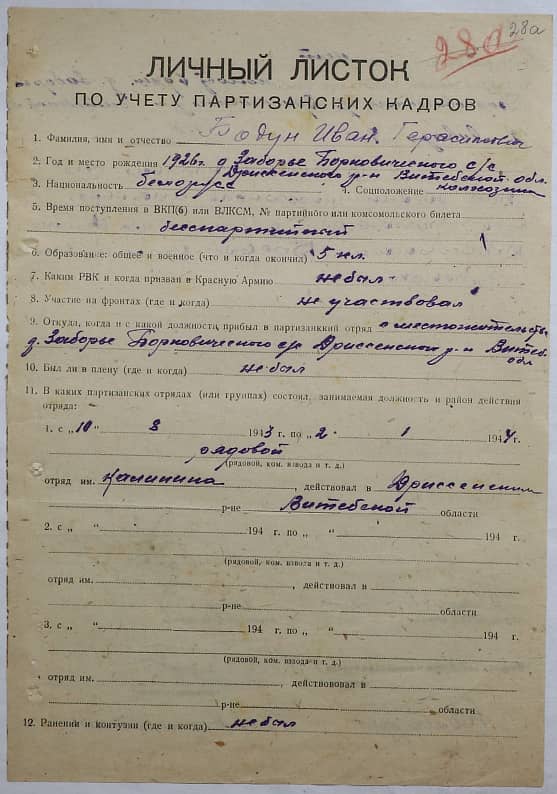 28а 28а
ЛИЧНЫЙ ЛИСТОК
ПО УЧЕТУ ПАРТИЗАНСКИХ КАДРОВ
1. Фамилия, имя и отчество Бодун Иван Герасимович
2. Год и место рождения 1926г. д Заборье Борковического с/с
Дриссенского р-н Витебской обл.
3. Национальность белорусс 4. Соцположение колхозник
5. Время поступления в ВКП(б) или ВЛКСМ, № партийного или комсомольского билета
беспартийный
6. Образование: общее и военное (что и когда окончил) 5 кл.
7. Каким РВК и когда призван в Красную Армию не был
8. Участие на фронтах (где и когда) не участвовал
9. Откуда, когда и с какой должности прибыл в партизанкий отряд с местожительства
д. Заборье Борковического с/с Дриссенского р-н Витеб.
обл
10. Был ли в плену (где и когда) не был
11. В каких партизанских отрядах (или группах) состоял, занимаемая должность и район действия
отряда:
1. с „10 “ 8 1943 г. по „ 2 “ 1 1944 г.
рядовой
(рядовой, ком. взвода и т. д.)
отряд им. Калинина, действовал в Дриссенским
р-не Витебской области
2. с „ “ 194 г. по „ “ 194 г.
(рядовой, ком. взвода и т. д.)
отряд им. , действовал в
р-не области
3. с „ “ 194 г. по „ “ 194 г.
(рядовой, ком. взвода и т. д.)
отряд им. , действовал в
р-не области
12. Ранений и контузии (где и когда) не был